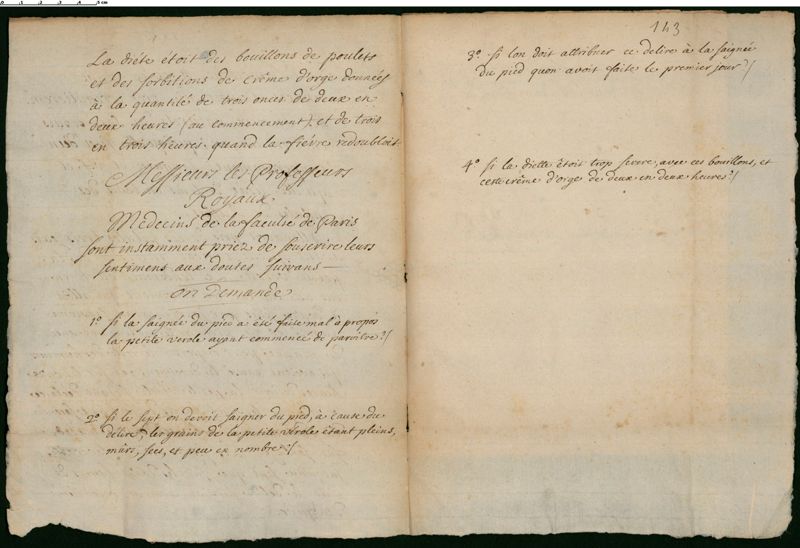 La diéte étoit des bouillons de poulets
et des sorbitions de crême d'orge données
à la quantité de trois onces de deux en
deux heures (au commencement), et de trois
en trois heures quand la fiévre redoubloit.
Messieurs les Professeurs
Royaux
Medecins de la faculté de Paris
sont instamment priez de souscrire leurs
sentimens aux doutes suivans
on Demande
1º si la saignée du pied a été faite mal à propos
la petite verole ayant commencé de paroitre?
2º si le sept on devoit saigner du pied, à cause du
délire, les grains de la petite vérole étant pleins,
murs, secs, et peu en nombre?
143
3º si lon doit attribuer ce delire à la saignée
du pied quon avoit faite le premier jour?
4º si la diette étoit trop severe, avec ces bouillons, et
cette crême d'orge de deux en deux heures?